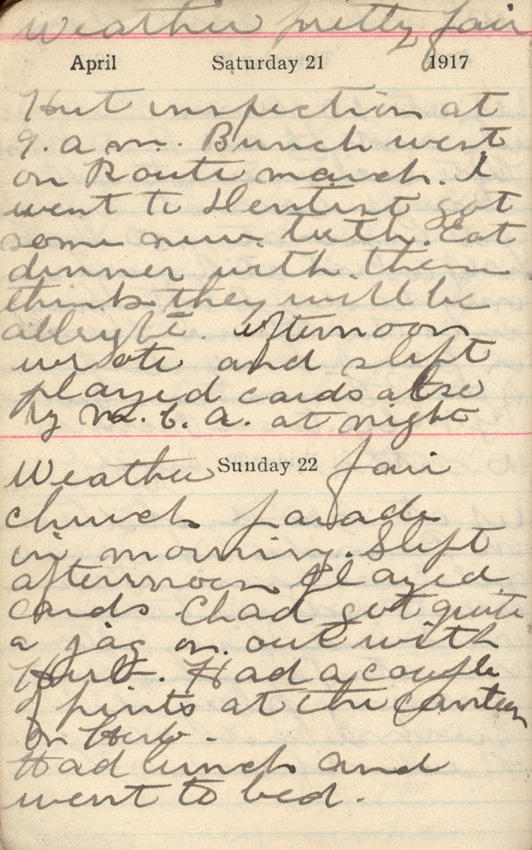 Weather pretty fair
April Saturday 21 1917
Hut inspection at
9. a m. Bunch went
on Route march. I
went to Dentist got
some new teeth. Eat
dinner with them
think they will be
allright. afternoon
wrote and slept
played cards also
Y M. C. A. at night
Weather Sunday 22 fair
church parade
in morning. Slept
afternoon played
cards Chad got quite
a jag on. out with
Herb. Had a couple
of pints at the canteen
on Herb.
Had lunch and
went to bed.